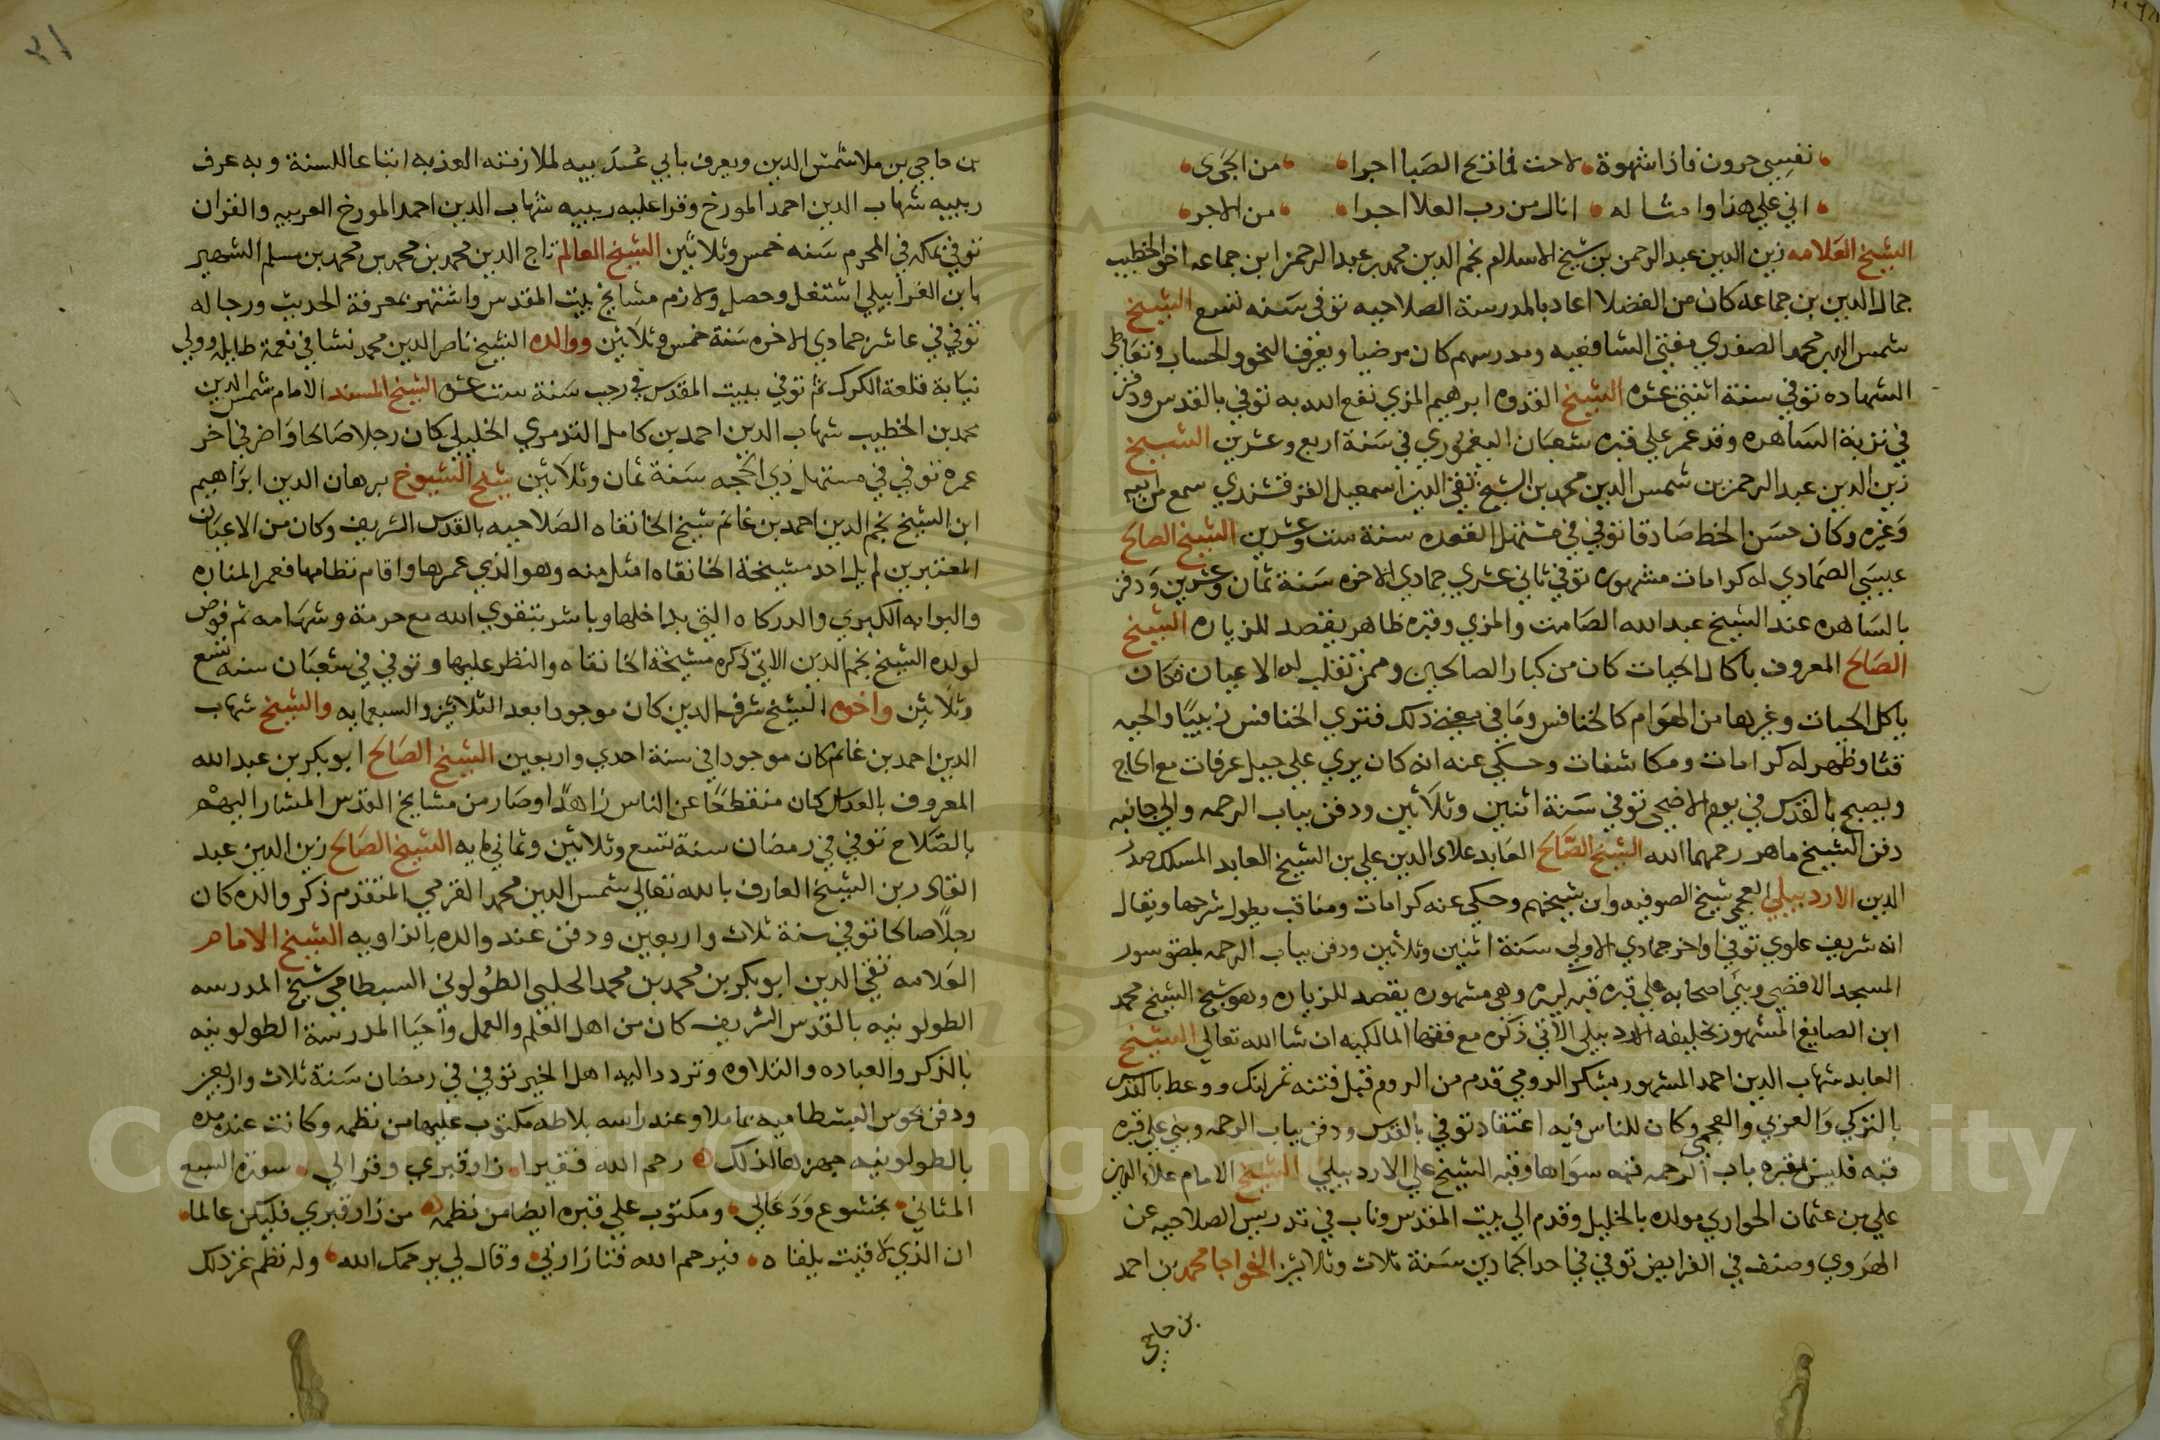 نفيسي حرون فاذا شهوة لاحت فما تزع الصبا اجرا من الجرى
اني علي هذا وامثاله انال من رب العلا اجرا من الاجر
الشيخ العلامه زين الدين عبد الرحمن بن شيخ الاسلام نجم الدين محمد بن عبد الرحمن ابن جماعه اخو الخطيب
جمال الدين بن جماعه كان من الفضلا اعاد بالمدرسة الصلاحيه توفي سنه تسع الشيخ
شمس الدين محمد الصفري مفتي الشافعيه ومدرسهم كان مرضيا ويعرف النحو والحساب وتعاطى
الشهاده توفي سنة اثنتي عشره الشيخ القدوه ابرهيم المزي نفع الله به توفي بالقدس ودفن
في تربة الساهره وقد عمر علي قبره شعبان اليغموري في سنة اربع وعشرين الشيخ
زين الدين عبد الرحمن بن شمس الدين محمد بن الشيخ تقي الدين اسمعيل القرقشندي سمع من ابيه
وغيره وكان حسن الخط صادقا توفي في مستهل القعده سنة ست وعشرين الشيخ الصالح
عيسي الصمادي له كرامات مشهوره توفي ثاني عشري جمادي الاخره سنة ثمان وعشرين ودفن
بالساهره عند الشيخ عبد الله الصامت والمزي وقبره ظاهر يقصد للزياره الشيخ
الصالح المعروف باكال الحيات كان من كبار الصالحين وممن تقلب له الاعيان فكان
ياكل الحيات وغيرها من الهوام كالخنافس وما في معني ذلك فتري الخنافس زبيبا والحيه
قثا وظهر له كرامات ومكاشفات وحكي عنه انه كان يري علي جبل عرفات مع الحاج
ويصبح بالقدس في يوم الاضحي توفي سنة اثنين وثلاثين ودفن بباب الرحمه والي جانبه
دفن الشيخ ماهر رحمهما الله الشيخ الصالح العابد علاء الدين علي بن الشيخ العابد المسلك صدر
الدين الاردبيلي العجمي شيخ الصوفيه وابن شيخهم وحكي عنه كرامات ومناقب يطول شرحها ويقال
انه شريف علوي توفي اواخر جمادي الاولي سنة اثنين وثلاثين ودفن بباب الرحمه لصق سور
المسجد الاقصي وبني اصحابه علي قبره قبه كبيره وهي مشهوره يقصد للزياره وهو شيخ الشيخ محمد
ابن الصايغ المشهور بخليفه الاردبيلي الاتي ذكره مع فقها المالكيه ان شا الله تعالي الشيخ
العابد شهاب الدين احمد المشهور بشكر الرومي قدم من الروم قبل فتنه تمرلنك ووعظ بالقدس
بالتركي والعربي والعجمي وكان للناس فيه اعتقاد توفي بالقدس ودفن بباب الرحمه وبني علي قبره
قبه فليس بمقبره باب الرحمه قبه سواها وقبه الشيخ علي الاردبيلي الشيخ الامام علاء الدين
علي بن عثمان الحواري مولده بالخليل وقدم الي بيت المقدس وناب في تدريس الصلاحيه عن
الهروي وصنف في الفرايض توفي في احد الجمادين سنة ثلاث وثلاثين الخواجا محمد بن احمد
بن حاجي
٣١
بن حاجي بن ملا شمس الدين ويعرف بابي عذبيه لملازمته العذبه اتباعا للسنة وبه عرف
ربيبه شهاب الدين احمد المورخ وقرا عليه ربيبه شهاب الدين احمد المورخ العربيه والقران
توفي بمكه في المحرم سنه خمس وثلاثين الشيخ العالم تاج الدين محمد بن محمد بن محمد بن مسلم الشهير
بابن الغرابيلي اشتغل وحصل ولازم مشايخ بيت المقدس واشتهر بمعرفة الحديث ورجاله
توفي في عاشر جمادي الاخره سنة خمس وثلاثين ووالده الشيخ ناصر الدين محمد نشا في نعمة طايله وولي
نيابة قلعة الكرك ثم توفي ببيت المقدس في رجب سنة ست عشر الشيخ المسند الامام شمس الدين
محمد بن الخطيب شهاب الدين احمد بن كامل التدمري الخليلي كان رجلا صالحا واضر في آخر
عمره توفي في مستهل ذي الحجه سنة ثمان وثلاثين شيخ الشيوخ برهان الدين ابراهيم
ابن الشيخ نجم الدين احمد بن غانم شيخ الخانقاه الصلاحيه بالقدس الشريف وكان من الاعيان
المعتبرين لم يل احد مشيخة الخانقاه امثل منه وهو الذي عمرها واقام نظامها فعمر المناره
والبوابه الكبري والدركاه التي بداخلها وباشر بتقوي الله مع حرمة وشهامه ثم فوض
لولده الشيخ نجم الدين الاتي ذكره مشيخة الخانقاه والنظر عليها وتوفي في شعبان سنه تسع
وثلاثين واخوه الشيخ شرف الدين كان موجودا بعد الثلاثين والسبعمايه والشيخ شهاب
الدين احمد بن غانم كان موجودا في سنة احدي واربعين الشيخ الصالح ابو بكر بن عبد الله
المعروف بالعداس كان منقطعا عن الناس زاهدا وصار من مشايخ القدس المشار اليهم
بالصلاح توفي في رمضان سنة تسع وثلاثين وثماني مايه الشيخ الصالح زين الدين عبد
القادر بن الشيخ العارف بالله تعالي شمس الدين محمد القرمي المتقدم ذكر والده كان
رجلا صالحا توفي سنة ثلاث واربعين ودفن عند والده بالزاويه الشيخ الامام
العلامه تقي الدين ابو بكر بن محمد بن محمد الحلبي الطولوني البسطامي شيخ المدرسه
الطولونيه بالقدس الشريف كان من اهل العلم والعمل واحيا المدرسة الطولونيه
بالذكر والعباده والتلاوه وتردد اليه اهل الخير توفي في رمضان سنة ثلاث واربعين
ودفن بحوش البسطاميه بماملا وعند راسه بلاطه مكتوب عليها من نظمه وكانت عنده مده
بالطولونيه جهزها لذلك رحم الله فقيرا زار قبري وقرا لي سورة السبع
المثاني بخشوع ودعا لي ومكتوب علي قبره ايضا من نظمه من زار قبري فليكن عالما
ان الذي لاقيت يلقاه فيرحم الله فتا زارني وقال لي يرحمك الله وله نظم غير ذلك
Copyright © King Saud University